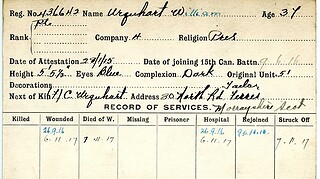 Reg. No. 436642 Name Urquhart William Age 37
Rank Pte. Company A Religion Pres
Date of Attestation Date of joining 15th Can. Battn. 9.6.16
Height 5 5½ Eyes Blue Complexion Dark Original Unit 51
Decorations Tailor
Next of Kin C. Urquhart Address 30 North Rd. Forres
RECORD OF SERVICES. Morayshire Scot
Killed Wounded Died of W. Missing Prisoner Hospital Rejoined Struck Off
26.9.16 26.9.16
6-11-17 7-11-17 6-11-17 7-11-17